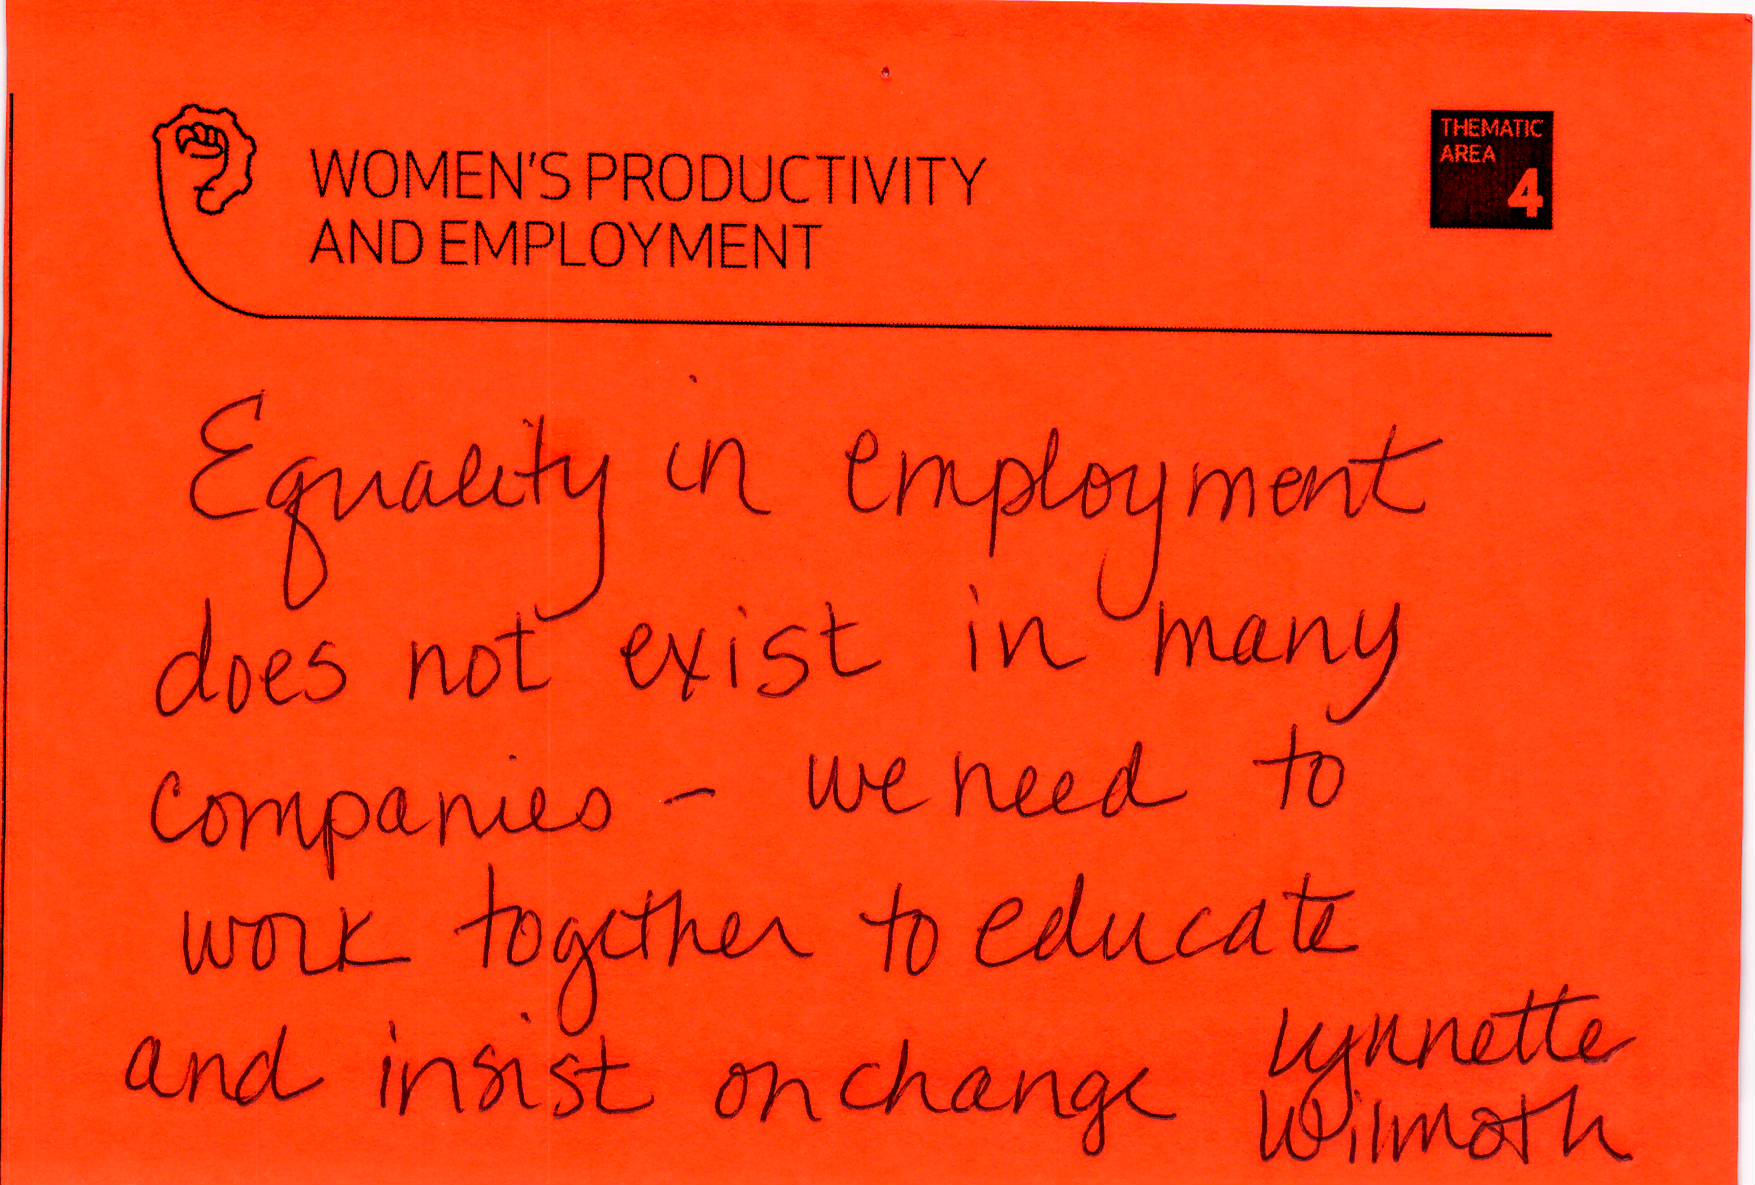 WOMEN'S PRODUCTIVITY
AND EMPLOYMENT
THEMATIC
AREA
4
Equality in employment
does not exist in many
companies – we need to
work together to educate
and insist on change
Lynnette
Wilmoth